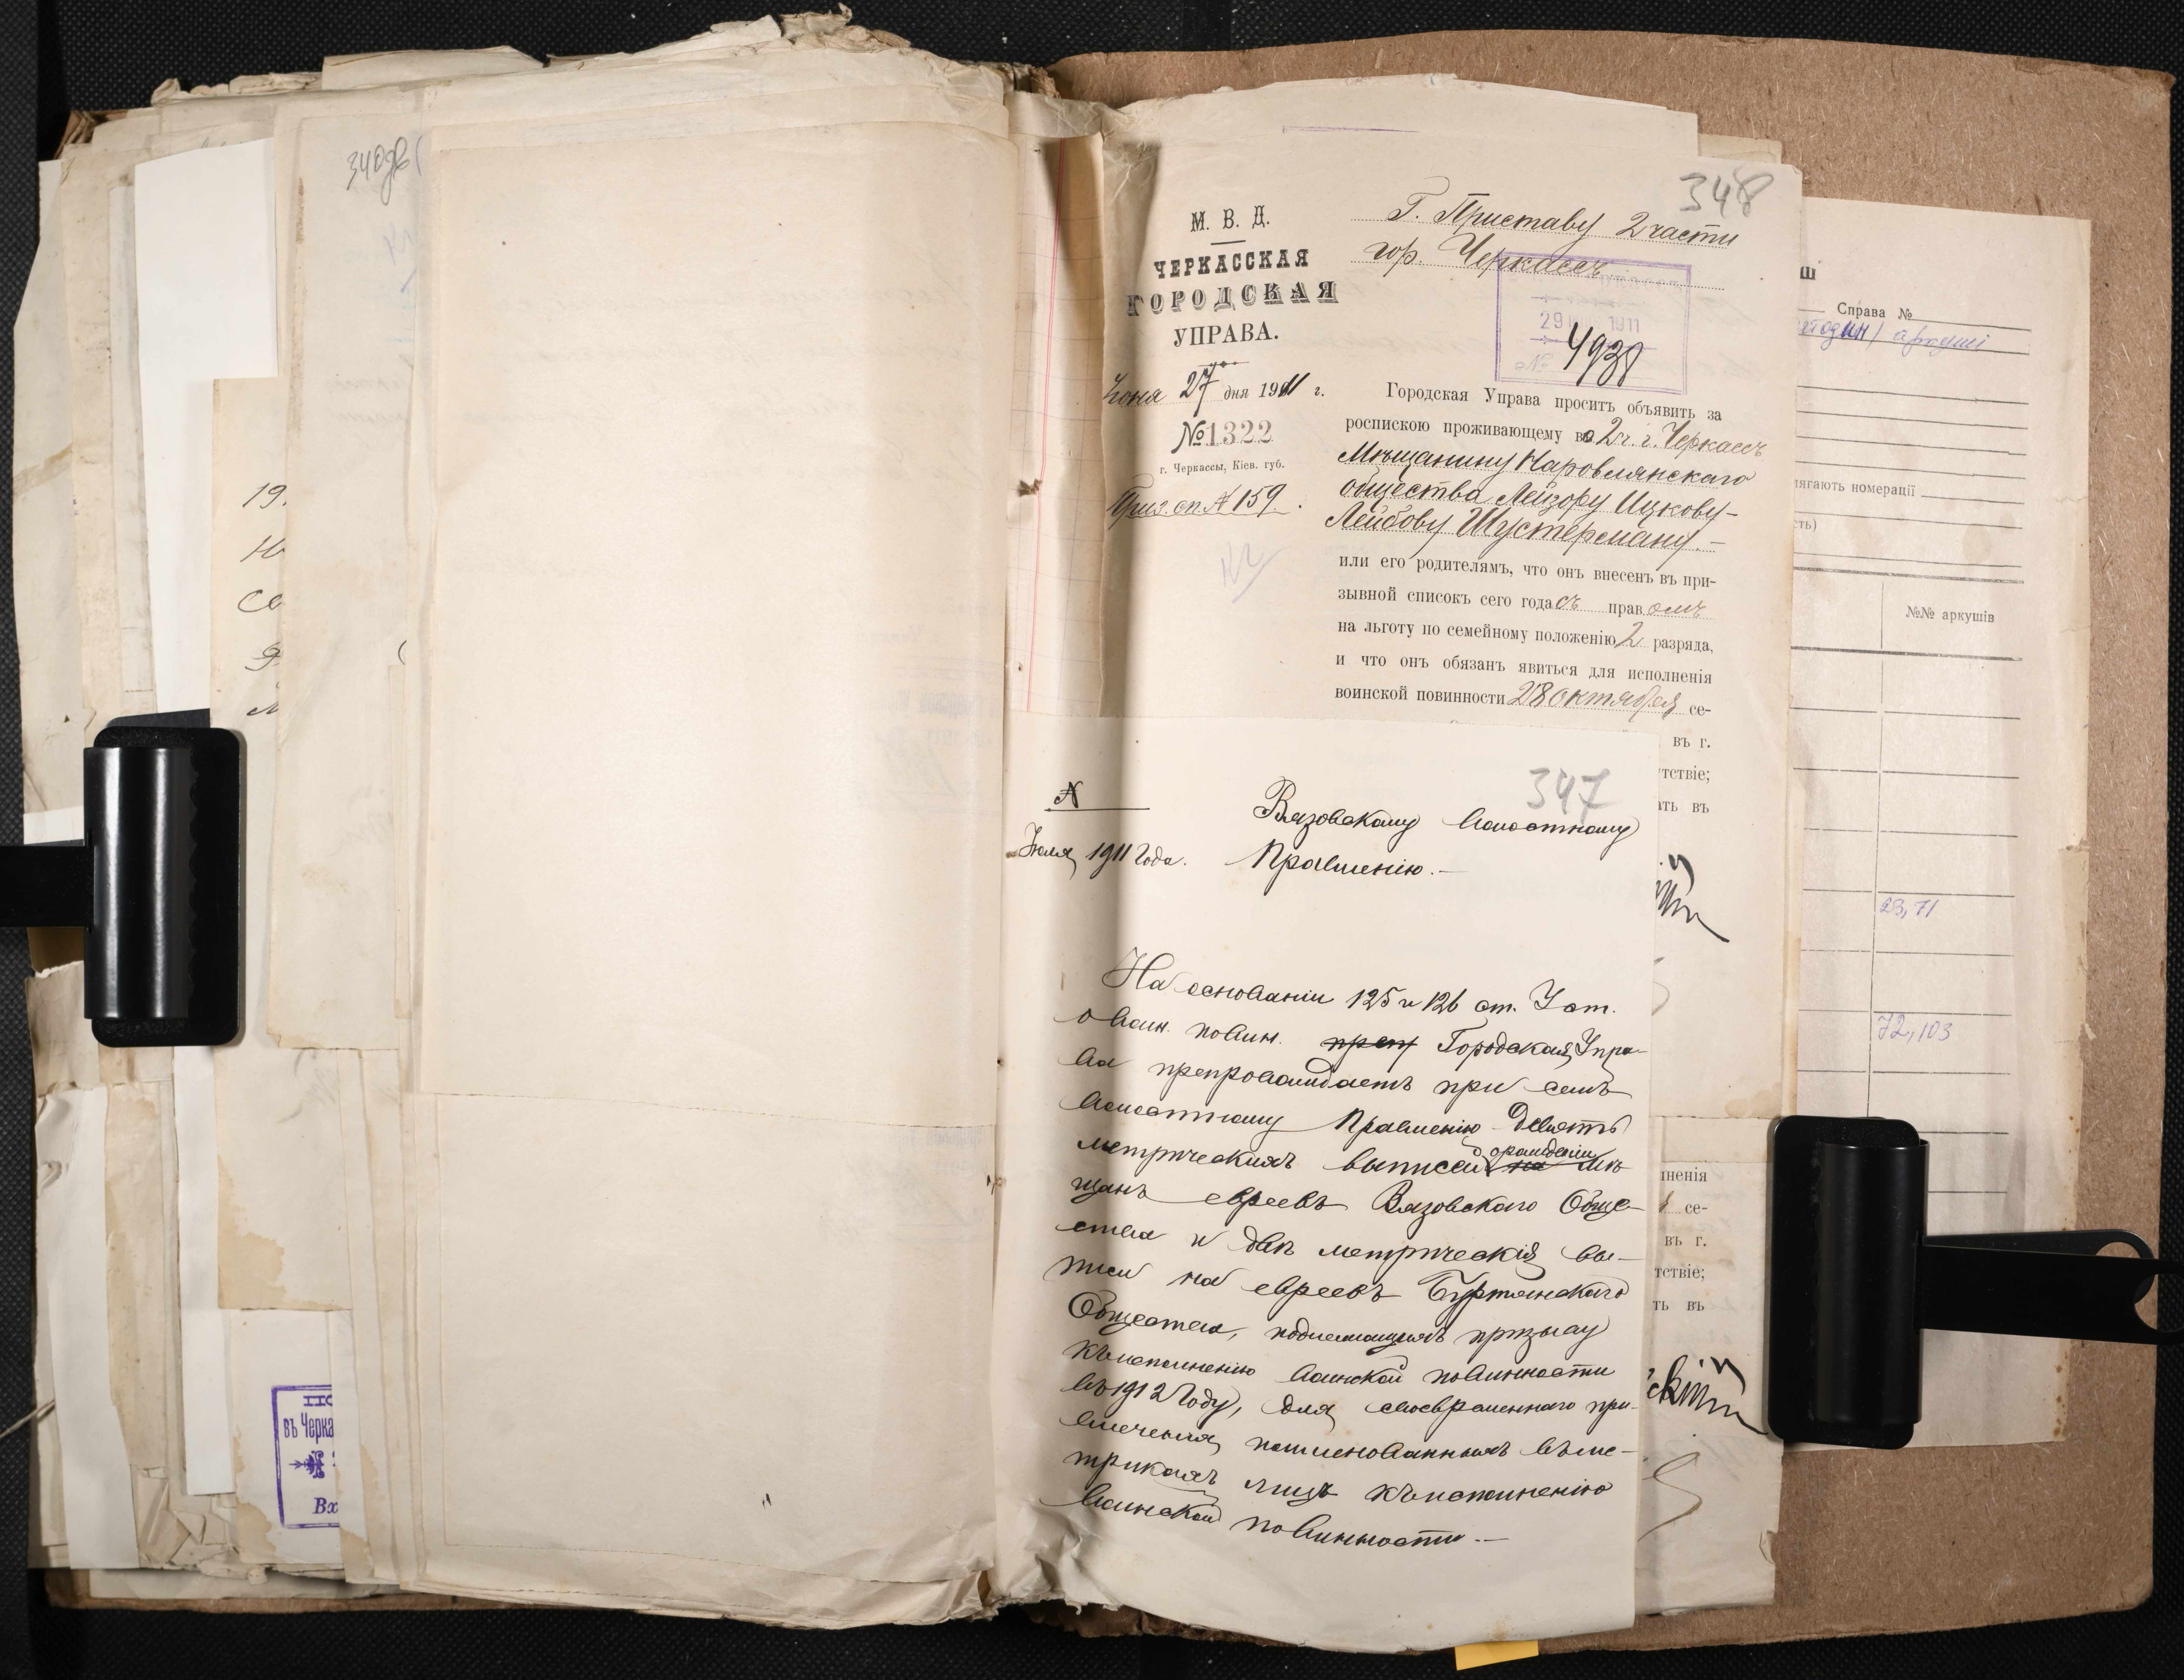 340зв
19.
348
М. В. Д.
ЧЕРКАССКАЯ
ГОРОДСКАЯ
УПРАВА.
Іюня 27 дня 1911 г.
№ 1322
г. Черкассы, Кіев. губ.
Приз. сп. № 159.
Г. Приставу 2 части
гор. Черкассъ
29 1911
№ 4938
Городская Управа проситъ объявить за
роспискою проживающему во 2 ч. г. Черкассъ
Мѣщанину Наровлянскаго
общества Лейзору Ицкову-
Лейбову Шустерману.-
или его родителямъ, что онъ внесенъ въ при-
зывной списокъ сего года съ правомъ
на льготу по семейному положенію 2 разряда,
и что онъ обязанъ явиться для исполненія
воинской повинности 28 октября се-
въ г.
тствіе;
ать въ
347
№
Іюля 1911 года.
Вязовскому Волостному
Правленію.-
На основаніи 125 и 126 ст. Уст.
о воин. повин. Городская Упра-
ва препровождаетъ при семъ
Волостному Правленію девять
метрическихъ выписей о рожденіи мѣ
щанъ евреевъ Вязовскаго Обще-
ства и двѣ метрическія вы-
писи на евреевъ Буртянскаго
Общества, подлежащихъ призыву
къ исполненію воинской повинности
въ 1912 году, для своевременнаго при-
влеченія поименованныхъ въ ме-
трикахъ лицъ къ исполненію
воинской повинности.-
ненія
се-
въ г.
тствіе;
ть въ
скій
Справа №
один) аркуші
лягають номерації
сть)
№№ аркушів
23, 71
72, 103
въ Черка
Вх